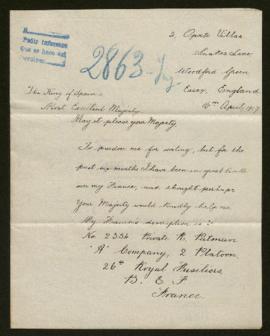 Pedir informes
2863-
Woodford Green
Essex, England
16th April, 1917
The King of Spain
Most Excellent Majesty
May it please your Majesty.
To pardon me for writing, but for the
past six months I have been in great trouble
over my Fiance, and thought perhaps
Your Majesty would kindly help me.
My Fiance's description is:-
No. 2334 Private R. Pitman
"A" Company, 2 Platoon
26th Royal Fusiliers
B. E. F
France